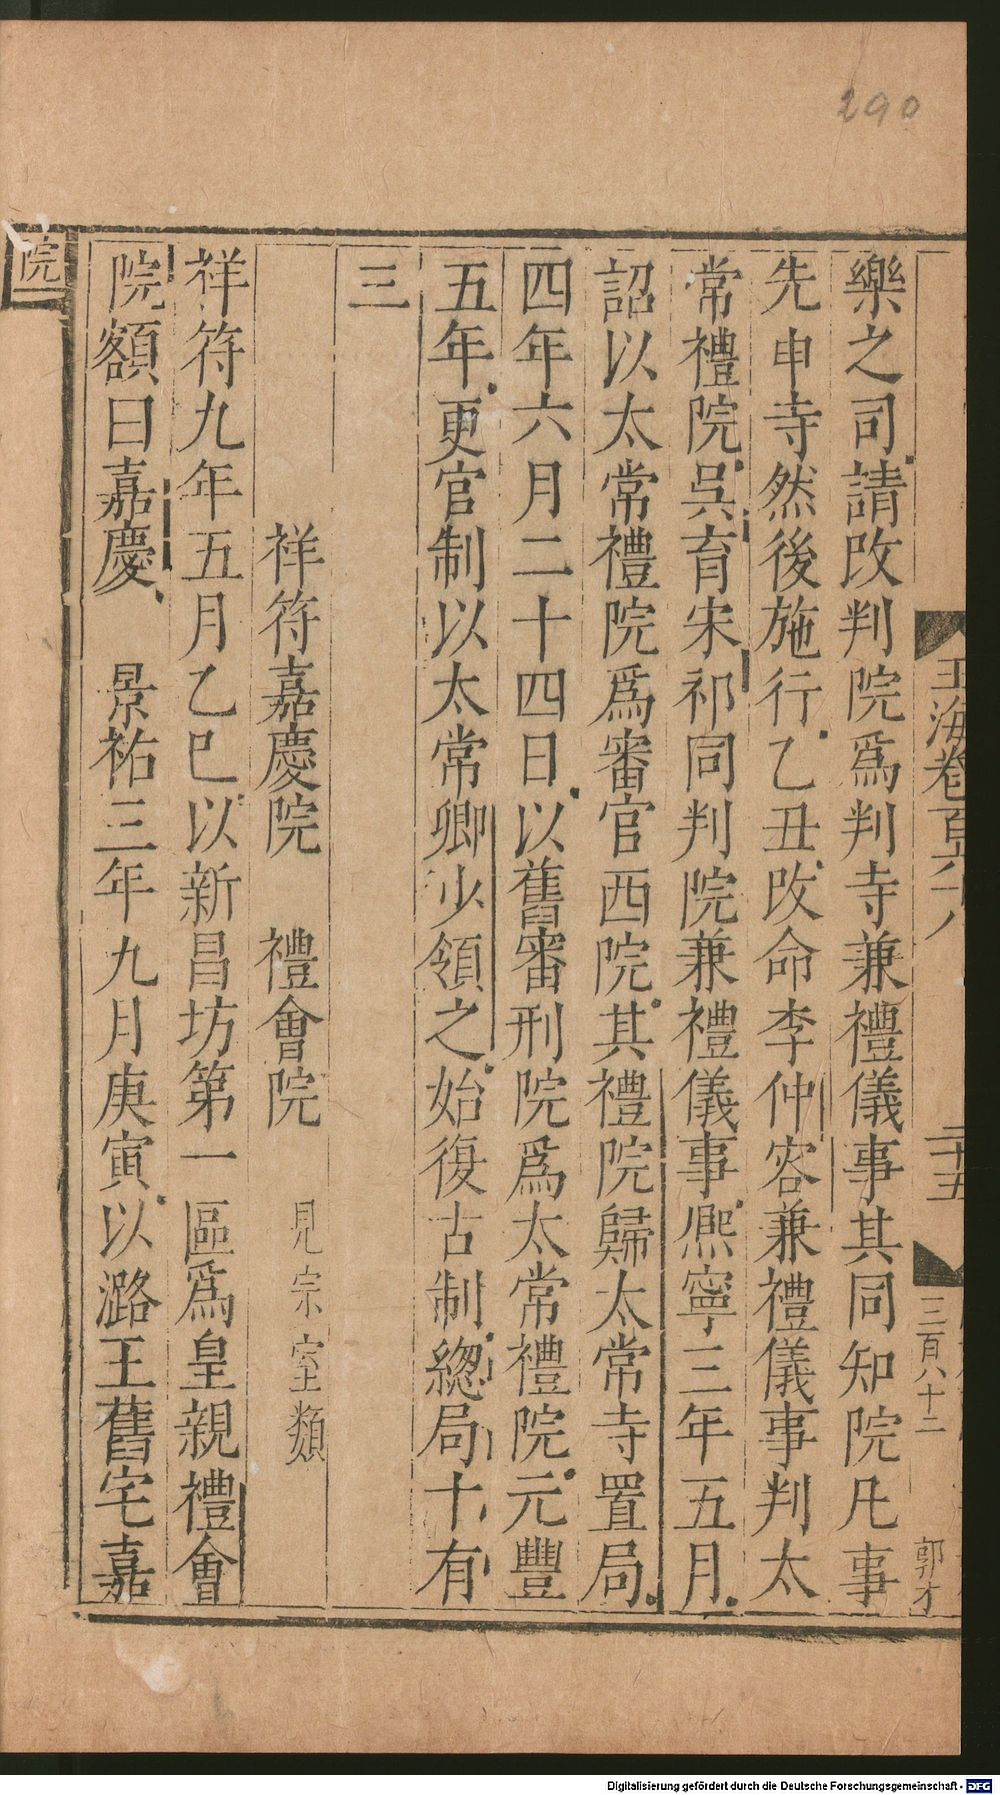 290
玉海卷百六十八
二十五
三百八十二
郭才
樂之司請改判院爲判寺兼禮儀事其同知院凡事
先申寺然後施行乙丑改命李仲容兼禮儀事判太
常禮院吳育宋祁同判院兼禮儀事熈寧三年五月
詔以太常禮院爲審官西院其禮院歸太常寺置局
四年六月二十四日以舊審刑院爲太常禮院元豐
五年更官制以太常卿少領之始復古制總局十有
三
祥符嘉慶院 禮會院 見宗室類
祥符九年五月乙巳以新昌坊第一區爲皇親禮會
院額曰嘉慶 景祐三年九月庚寅以潞王舊宅嘉
院
Digitalisierung gefördert durch die Deutsche Forschungsgemeinschaft - DFG